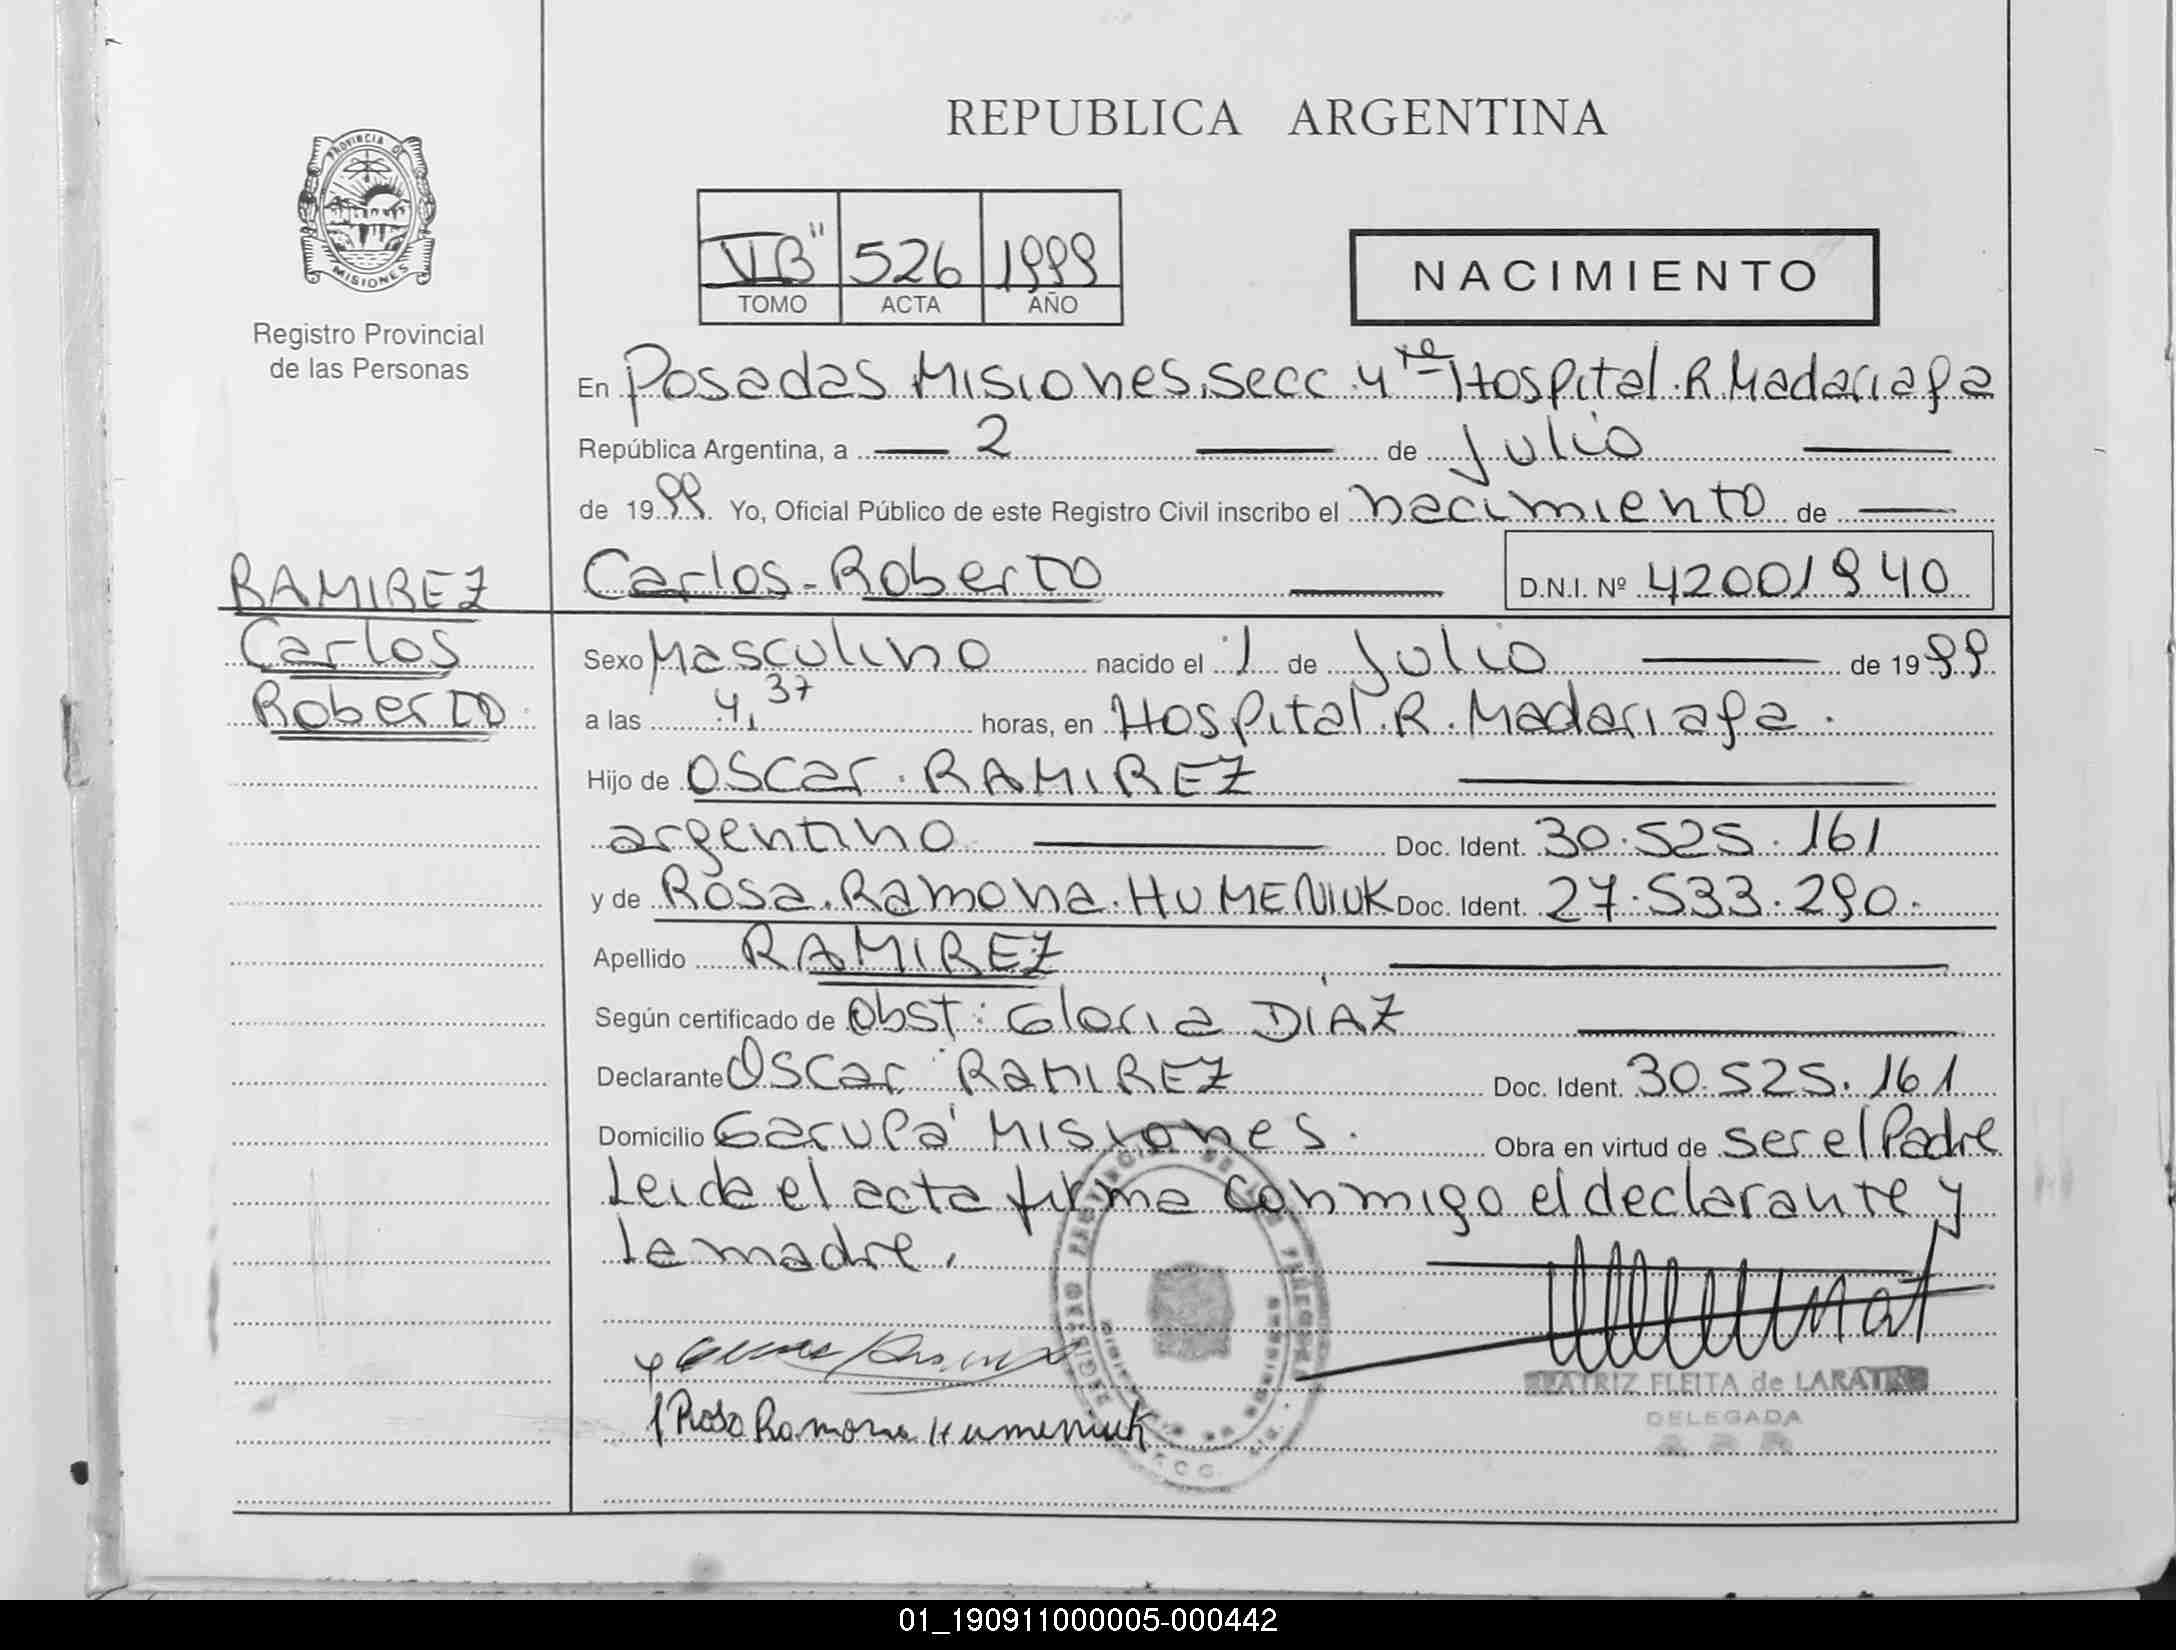 REPUBLICA ARGENTINA
PROVINCIA DE
MISIONES
Registro Provincial
de las Personas
VI B" 526 1999
TOMO ACTA AÑO
NACIMIENTO
En Posadas Misiones, secc. 4ta Hospital. R. Madariaga
República Argentina, a 2 de Julio
de 1999. Yo, Oficial Público de este Registro Civil inscribo el nacimiento de
Carlos - Roberto D.N.I. Nº 42001940
RAMIREZ
Carlos
Roberto
Sexo Masculino nacido el 1 de Julio de 1999
a las 4,37 horas, en Hospital. R. Madariaga.
Hijo de Oscar. RAMIREZ
argentino Doc. Ident. 30.525.161
y de Rosa. Ramona. HUMENIUK Doc. Ident. 27.533.290.
Apellido RAMIREZ
Según certificado de Obst: Gloria DÍAZ
Declarante Oscar RAMIREZ Doc. Ident. 30.525.161
Domicilio Garupá Misiones. Obra en virtud de ser el Padre
Leida el acta firma conmigo el declarante y
la madre.
Rosa Ramona Humeniuk
BEATRIZ FLEITA de
DELEGADA
01_190911000005-000442